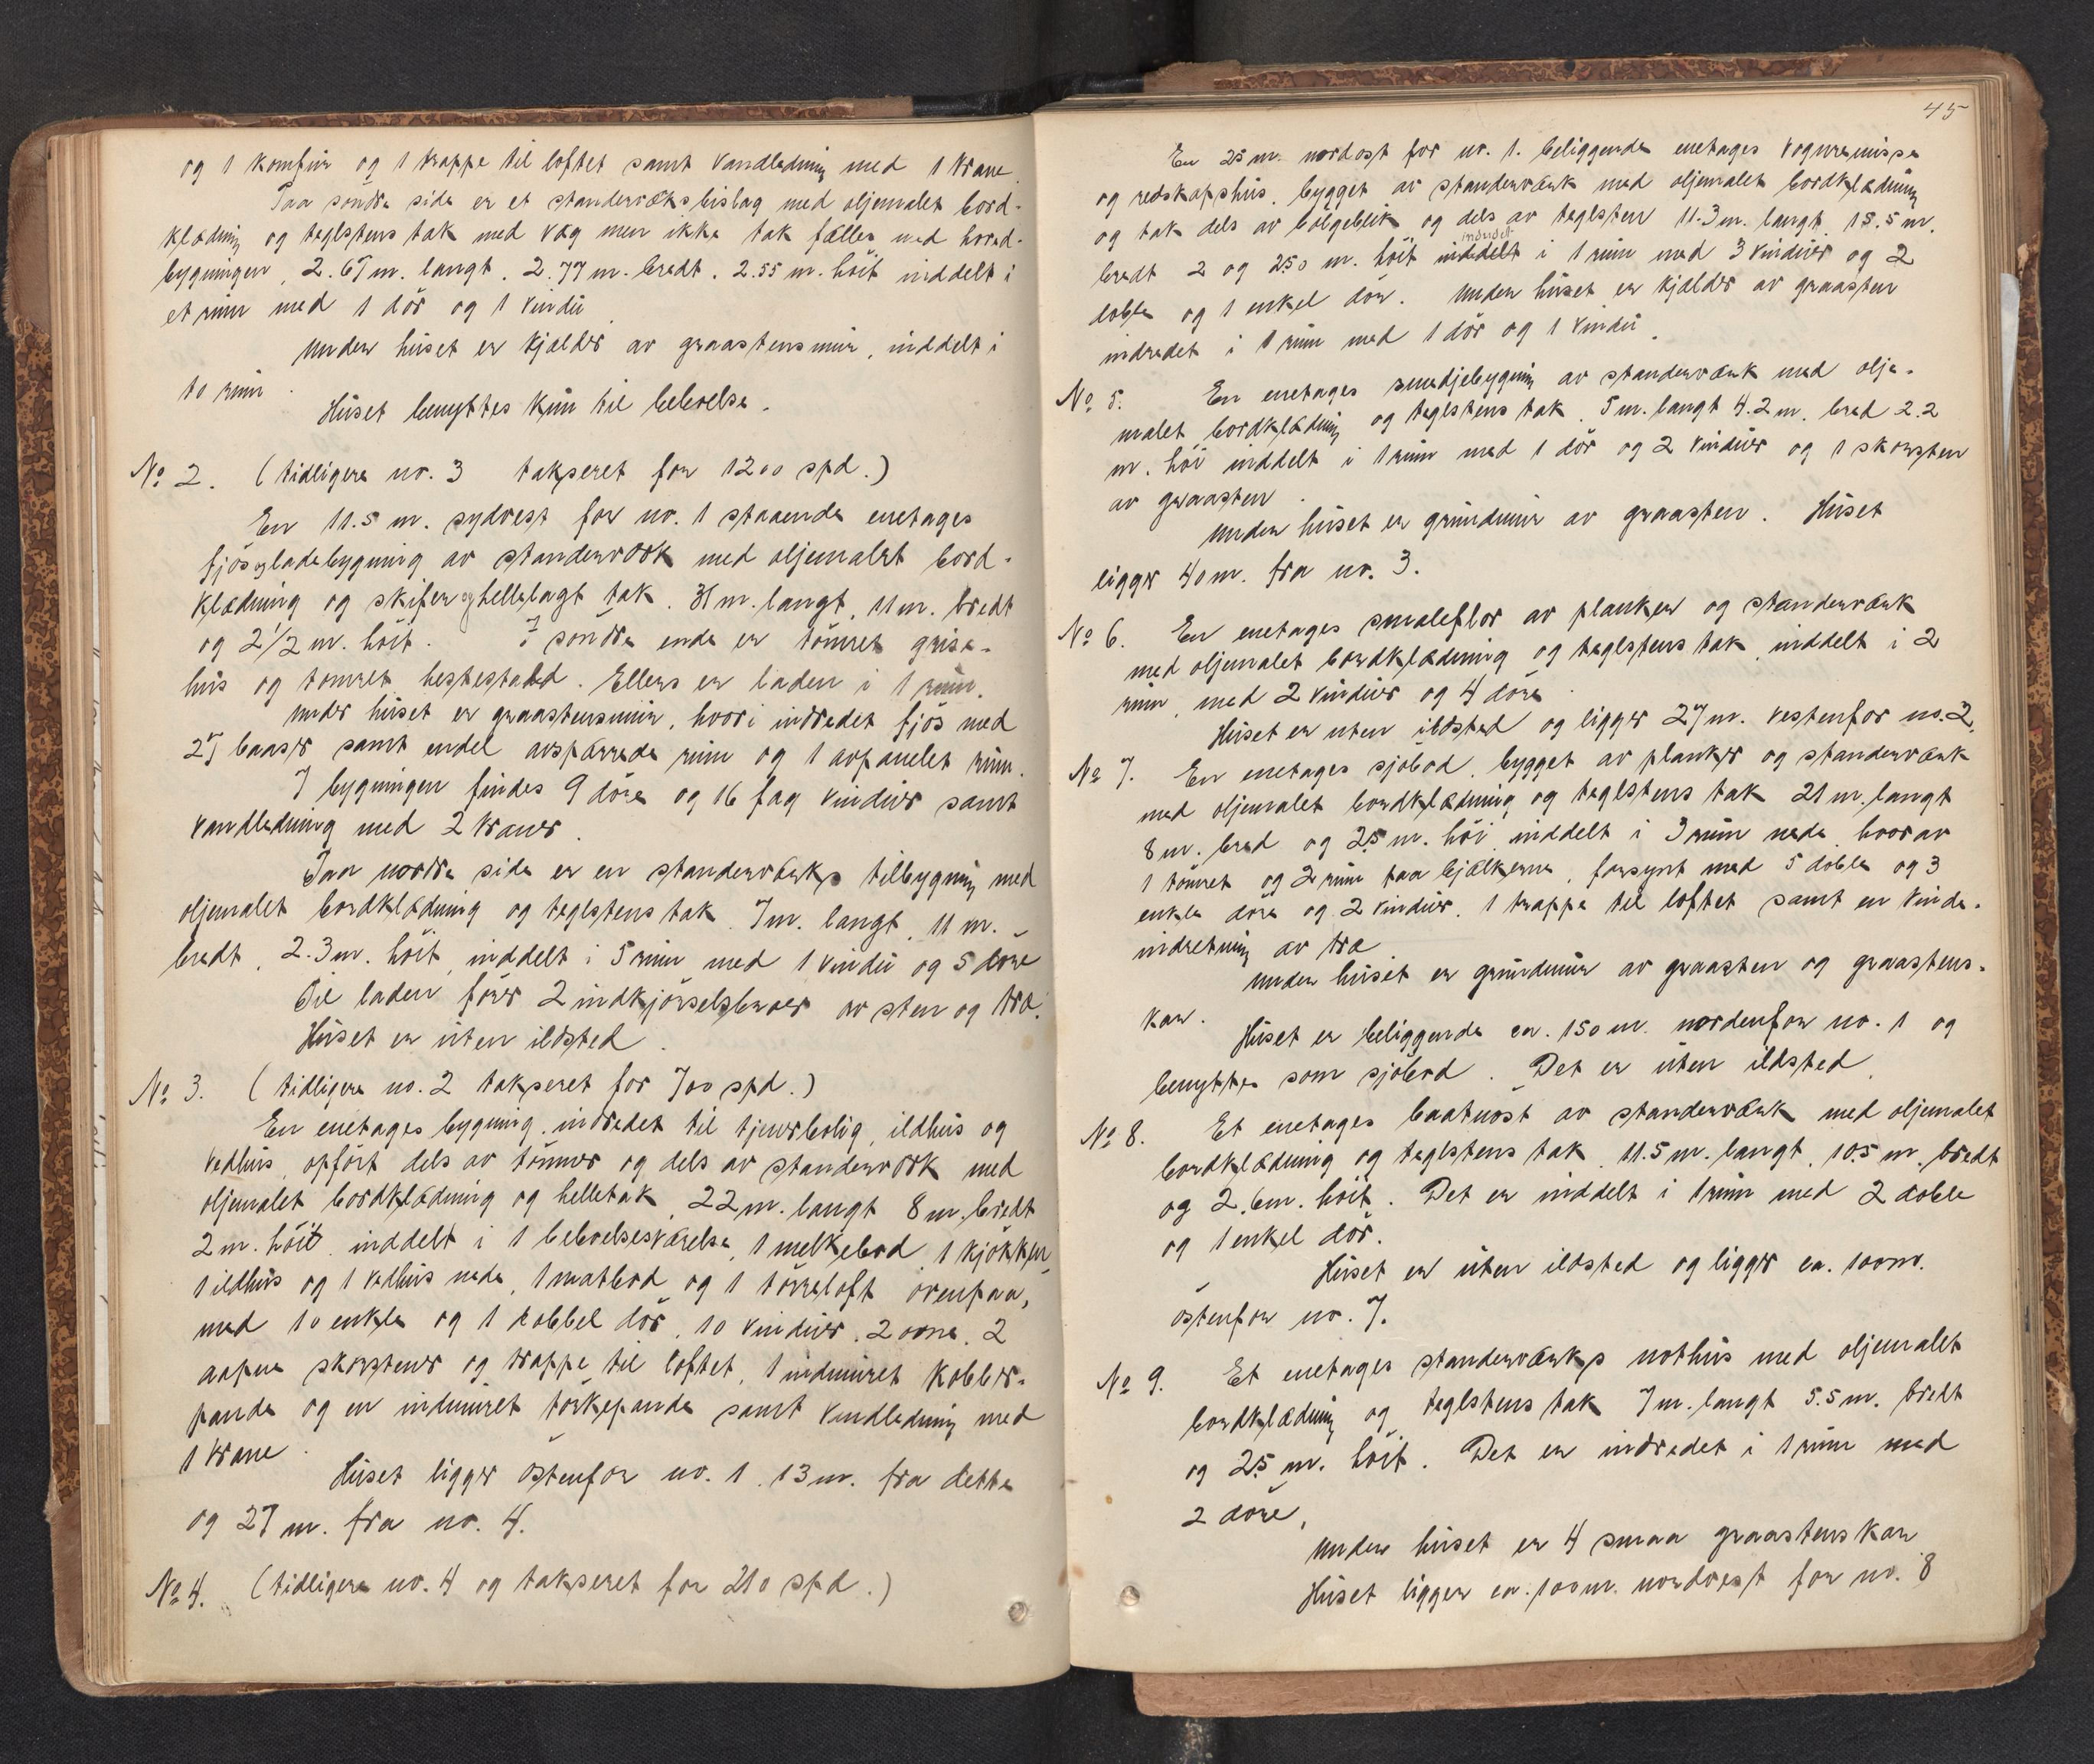 og 1 komfur og 1 trappe til loftet samt vandledning med 1 krane.
Paa søndre side er et standerværksbislag med oljemalet bord-
klædning og teglstens tak med væg men ikke tak fælles med hoved-
bygningen, 2.67 m. langt. 2.77 m. bredt. 2.55 m. höit inddelt i
et rum med 1 dör og 1 vindu
Under huset er kjælder av graastensmur, inddelt i
to rum.
Huset benyttes kun til beboelse.
No 2. (tidligere no. 3 takseret for 1200 spd.)
En 11.5 m. sydvest for no. 1 staaende enetages
fjös og ladebygning av standerværk med oljemalet bord-
klædning og skifer og hellelagt tak. 31 m. langt, 11 m. bredt
og 2 1/2 m. höit. I söndre ende er tömret grise-
hus og tömret hestestald. Ellers er laden i 1 rum.
Under huset er graastensmur, hvori indredet fjös med
27 baaser samt endel avspærrede rum og 1 avpanelet rum.
I bygningen findes 9 döre og 16 fag vinduer samt
vandledning med 2 kraner.
Paa nordre side er en standerværks tilbygning med
oljemalet bordklædning og teglstens tak 7 m. langt, 11 m.
bredt, 2.3 m. höit, inddelt i 5 rum med 1 vindu og 5 döre
Til laden förer 2 indkjörselsbroer av sten og træ.
Huset er uten ildsted.
No 3. (tidligere no. 2 takseret for 700 spd.)
En enetages bygning, indredet til tjenerbolig, ildhus og
vedhus, opfört dels av tömmer og dels av standerværk med
oljemalet bordklædning og helletak, 22 m. langt 8 m. bredt
2 m. höit, inddelt i 1 beboelsesværelse, 1 melkebod 1 kjökken
1 ildhus og 1 vedhus nede, 1 matbod og 1 törreloft ovenpaa,
med 10 enkle og 1 dobbel dör, 10 vinduer, 2 ovne, 2
aapne skorstener og trappe til loftet, 1 indmuret kobber-
pande og en indmuret tørkepande samt vandledning med
1 krane.
Huset ligger östenfor no. 1, 13 m. fra dette
og 27 m. fra no. 4.
No 4. (tidligere no. 4 og takseret for 210 spd.)
45
En 25 m. nordost for no. 1. beliggende enetages vognremisse
og redskapshus, bygget av standerværk med oljemalet bordklædning
og tak dels av bölgeblik og dels av teglsten 11.3 m. langt, 15.5 m.
indredet
bredt 2 og 250 m. höit inddelt i 1 rum med 3 vinduer og 2
doble og 1 enkel dör. Under huset er kjelder av graasten
indredet i 1 rum med 1 dör og 1 vindu.
No 5. En enetages smedjebygning av standerværk med olje-
malet bordklædning og teglstens tak, 5 m. langt 4.2 m. bred 2.2
m. höi inddelt i 1 rum med 1 dör og 2 vinduer og 1 skorsten
av graasten.
Under huset er grundmur av graasten. Huset
ligger 40 m. fra no. 3.
No 6. En enetages smaleflor av planker og standerværk
med oljemalet bordklædning og teglstens tak, inddelt i 2
rum, med 2 vinduer og 4 döre.
Huset er uten ildsted og ligger 27 m. vestenfor no. 2.
No 7. En enetages sjöbod, bygget av planker og standerværk
med oljemalet bordklædning og teglstens tak 21 m. langt
8 m. bred og 2.5 m. höi inddelt i 3 rum nede, hvorav
1 tömret og 2 rum paa bjælkerne, forsynt med 5 doble og 3
enkle döre og 2 vinduer, 1 trappe til loftet samt en vinde-
indretning av træ
Under huset er grundmur av graasten og graastens-
kar.
Huset er beliggende ca. 150 m. nordenfor no. 1 og
benyttes som sjöbod. Det er uten ildsted.
No 8. Et enetages baatnöst av standerværk med oljemalet
bordklædning og teglstens tak, 11.5 m. langt, 10.5 m. bredt
og 2.6 m. höit. Det er inddelt i 1 rum med 2 doble
og 1 enkel dör.
Huset er uten ildsted og ligger ca. 100 m.
östenfor no. 7.
No 9. Et enetages standerværks nothus med oljemalet
bordklædning og teglstens tak 7 m. langt 5.5 m. bredt
og 2.5 m. höit. Det er indredet i 1 rum med
2 döre,
Under huset er 4 smaa graastenskar
Huset ligger ca. 100 m. nordvest for no. 8